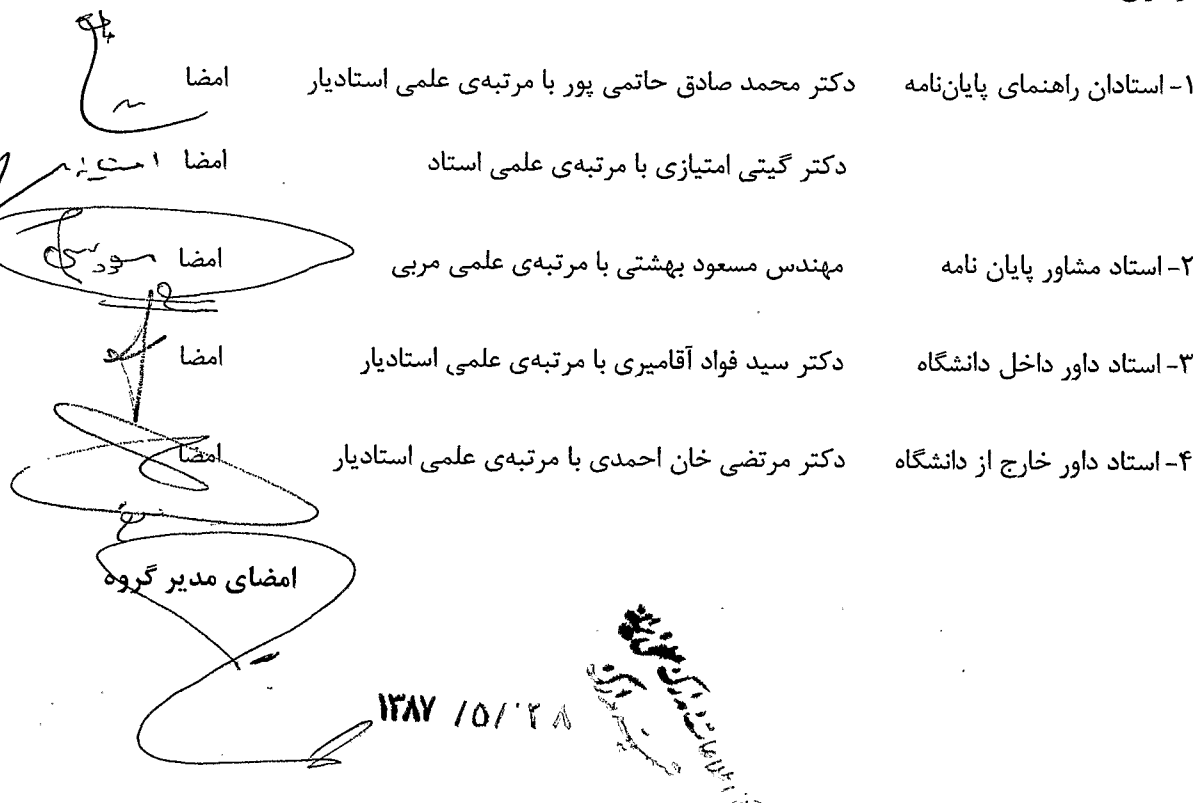 ۱- استادان راهنمای پایان‌نامه دکتر محمد صادق حاتمی پور با مرتبه‌ی علمی استادیار امضا
دکتر گیتی امتیازی با مرتبه‌ی علمی استاد امضا
۲- استاد مشاور پایان نامه مهندس مسعود بهشتی با مرتبه‌ی علمی مربی امضا
۳- استاد داور داخل دانشگاه دکتر سید فواد آقامیری با مرتبه‌ی علمی استادیار امضا
۴- استاد داور خارج از دانشگاه دکتر مرتضی خان احمدی با مرتبه‌ی علمی استادیار امضا
امضای مدیر گروه
۱۳۸۷ /۵/ ۲۸